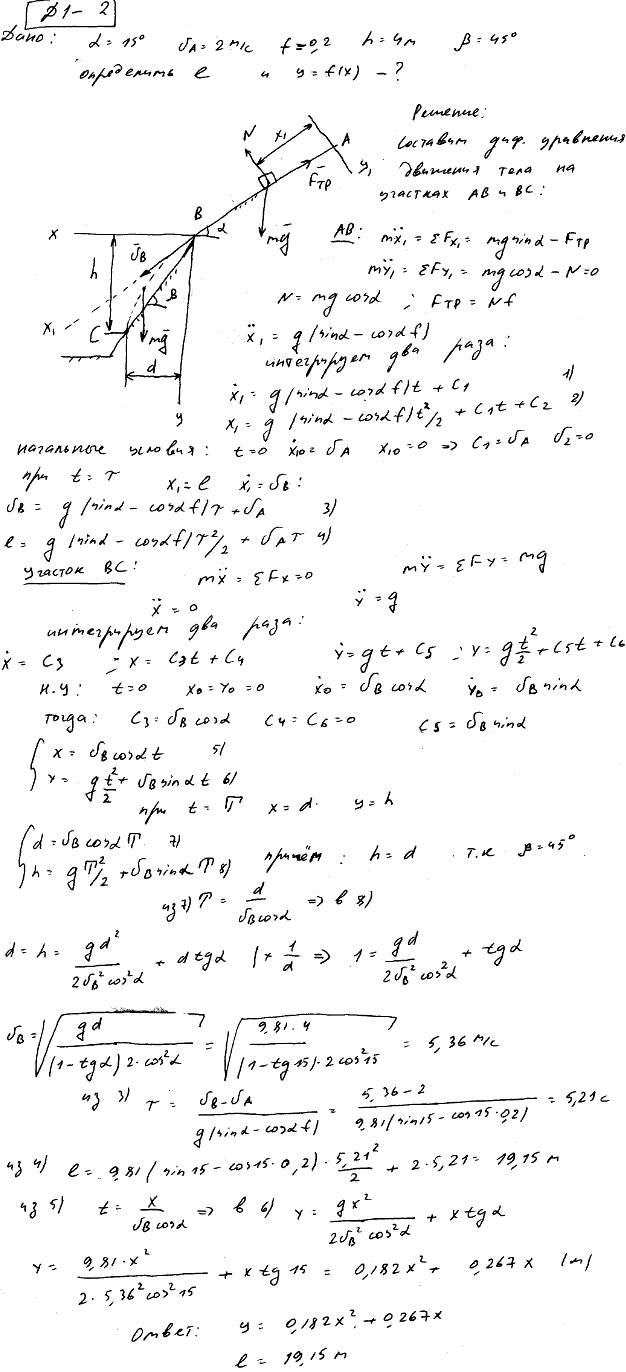 Д1-2
Дано: α = 15° υA = 2 м/с f = 0,2 h = 4м β = 45°
определить ℓ и y = f(x) - ?
Решение:
составим диф. уравнения
движения тела на
участках AB и BC:
N x₁ A y₁ Fтр
B α mg
x υB h β
x₁ C mg d
y
AB: mẍ₁ = ΣFx₁ = mg sinα - Fтр
mÿ₁ = ΣFy₁ = mg cosα - N = 0
N = mg cosα ; Fтр = Nf
ẍ₁ = g (sinα - cosα f)
интегрируем два раза:
ẋ₁ = g (sinα - cosα f)t + C₁ 1)
x₁ = g (sinα - cosα f)t²/2 + C₁t + C₂ 2)
начальные условия: t=0 ẋ₁₀ = υA x₁₀ = 0 => C₁ = υA C₂=0
при t = τ x₁ = ℓ ẋ₁ = υB:
υB = g (sinα - cosα f)τ + υA 3)
ℓ = g (sinα - cosα f)τ²/2 + υA τ 4)
участок BC: mẍ = ΣFx = 0 mÿ = ΣFy = mg
ẍ = 0 ÿ = g
интегрируем два раза:
ẋ = C₃ ; x = C₃t + C₄ ẏ = gt + C₅ ; y = gt²/2 + C₅t + C₆
н.у: t=0 x₀ = y₀ = 0 ẋ₀ = υB cosα ẏ₀ = υB sinα
тогда: C₃ = υB cosα C₄ = C₆ = 0 C₅ = υB sinα
x = υB cosα t 5)
y = gt²/2 + υB sinα t 6)
при t = T x = d. y = h
d = υB cosα T 7)
h = gT²/2 + υB sinα T 8) причём: h = d т.к β = 45°
из 7) T = d/(υB cosα) => в 8)
d = h = gd²/(2υB² cos²α) + d tgα |× 1/d => 1 = gd/(2υB² cos²α) + tgα
υB = √(gd/((1-tgα)2·cos²α)) = √(9,81·4/((1-tg15)·2cos²15)) = 5,36 м/с
из 3) τ = (υB-υA)/(g(sinα-cosα f)) = (5,36-2)/(9,81(sin15-cos15·0,2)) = 5,21 с
из 4) ℓ = 9,81(sin15-cos15·0,2)·5,21²/2 + 2·5,21 = 19,15 м
из 5) t = x/(υB cosα) => в 6) y = gx²/(2υB² cos²α) + x tgα
y = 9,81·x²/(2·5,36² cos²15) + x tg15 = 0,182x² + 0,267x (м)
Ответ: y = 0,182x² + 0,267x
ℓ = 19,15 м